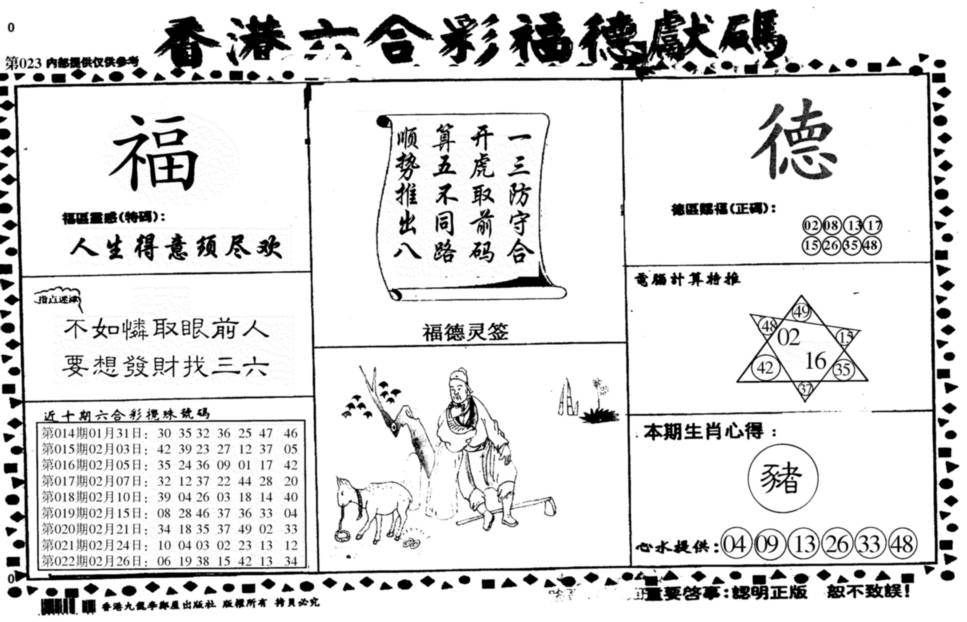 0
香港六合彩福德獻碼
第023 内部提供仅供参考
福
福區靈感(特碼)：
人生得意须尽欢
指点迷津
不如憐取眼前人
要想發財找三六
近十期六合彩攪珠號碼
第014期01月31日：30 35 32 36 25 47 46
第015期02月03日：42 39 23 27 12 37 05
第016期02月05日：35 24 36 09 01 17 42
第017期02月07日：32 12 37 22 44 28 20
第018期02月10日：39 04 26 03 18 14 40
第019期02月15日：08 28 46 37 36 33 04
第020期02月21日：34 18 35 37 49 02 33
第021期02月24日：10 04 03 02 23 13 12
第022期02月26日：06 19 38 15 42 13 34
一三防守合
开虎取前码
算五不同路
顺势推出八
福德灵签
德
德區賜福(正碼)：
02 08 13 17
15 26 35 48
電腦計算特推
49
48
02
15
16
42
35
37
本期生肖心得：
豬
心水提供：04 09 13 26 33 48
0
版權所有 拷貝必究
重要啓事：認明正版 恕不致誤！